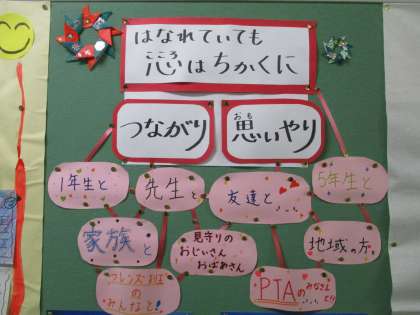 はなれていても
心はちかくに
つながり
思いやり
おも
1年生と
先生と
友達と
5年生と
家族と
見守りの
おじいさん
おばあさん
地域の方
フレンズ班
のみんなと!
PTAのみなさんと!!